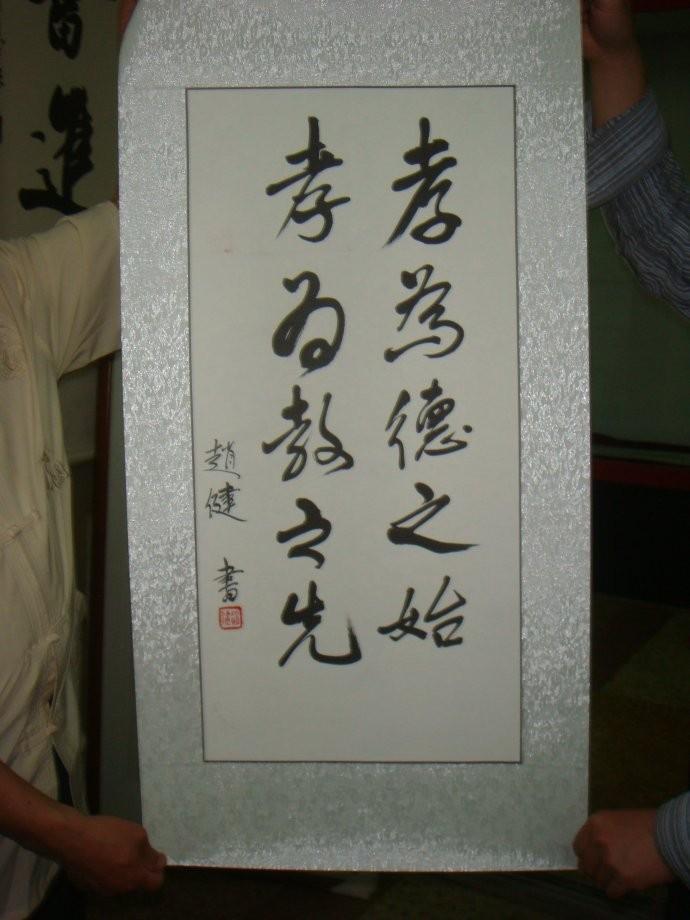 孝為德之始
孝為教之先
趙健 書
奮進